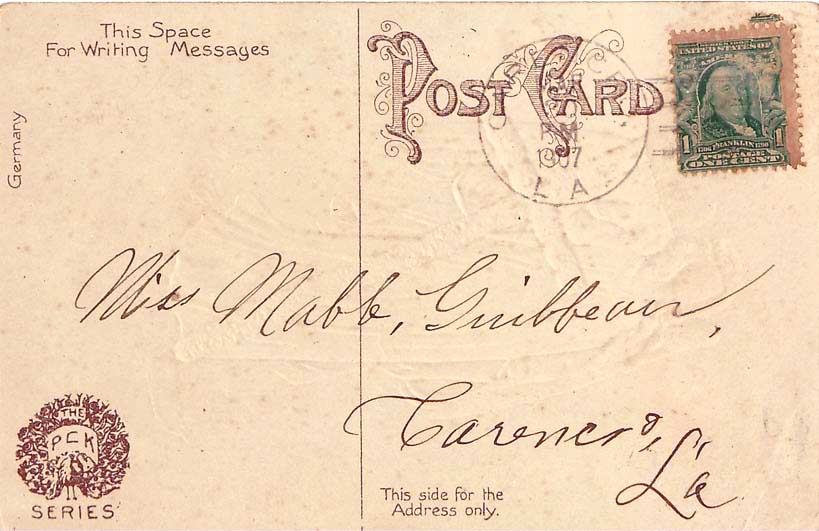 This Space
For Writing Messages
Germany
POST CARD
1907
LA
UNITED STATES OF
AMERICA
1 1706 FRANKLIN 1790 1
POSTAGE
ONE CENT
Miss Mabb, Guibbeau,
La
THE
PCK
SERIES
This side for the
Address only.